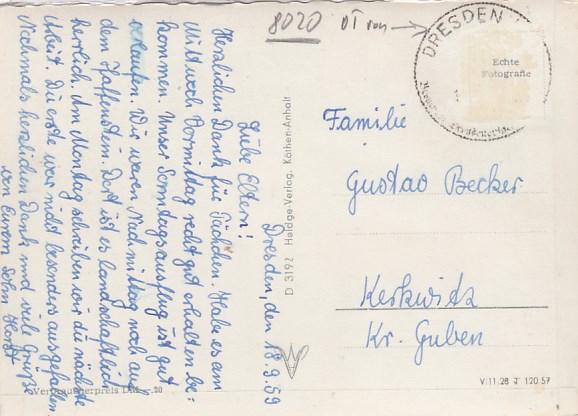 8020
DT von
DRESDEN
Echte
Fotografie
Dresden, den 18.9.59
Liebe Eltern!
Herzlichen Dank für Päckchen. Habe es am
Mittwoch Vormittag recht gut erhalten be-
kommen. Unser Sonntagsausflug ist gut
verlaufen. Wir waren Nachmittag noch auf
dem Pfaffenstein. Dort ist es landschaftlich
herrlich. Am Montag schreiben wir die nächste
Arbeit. Die erste war nicht besonders ausgefallen.
Nochmals herzlichen Dank und viele Grüße
von Eurem Sohn Horst
D 3197 Heldge-Verlag, Köthen-Anhalt
Familie
Gustav Becker
Kerkwitz
Kr. Guben
Verbraucherpreis DM -.20
V/11/28 J 120.57